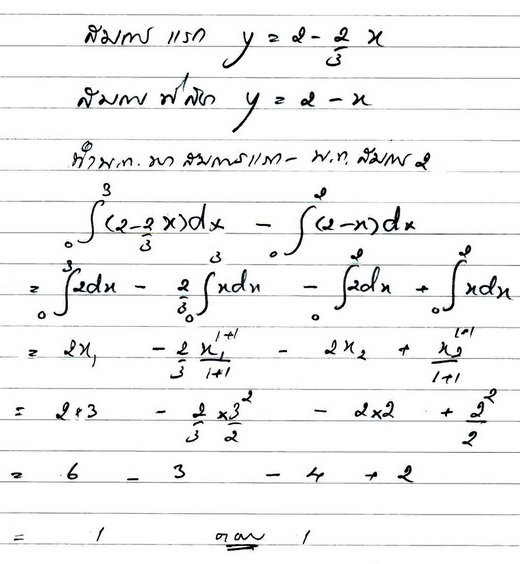 สมการ แรก y = 2 - 2/3 x
สมการ ที่สอง y = 2 - x
นำ พ.ท. มา สมการแรก - พ.ท. สมการ 2
∫₀³ (2 - 2/3 x) dx - ∫₀² (2 - x) dx
= ∫₀³ 2dx - 2/3 ∫₀³ xdx - ∫₀² 2dx + ∫₀² xdx
= 2x₁ - 2/3 x₁¹⁺¹/1+1 - 2x₂ + x₂¹⁺¹/1+1
= 2*3 - 2/3 × 3²/2 - 2×2 + 2²/2
= 6 - 3 - 4 + 2
= 1 ตอบ 1